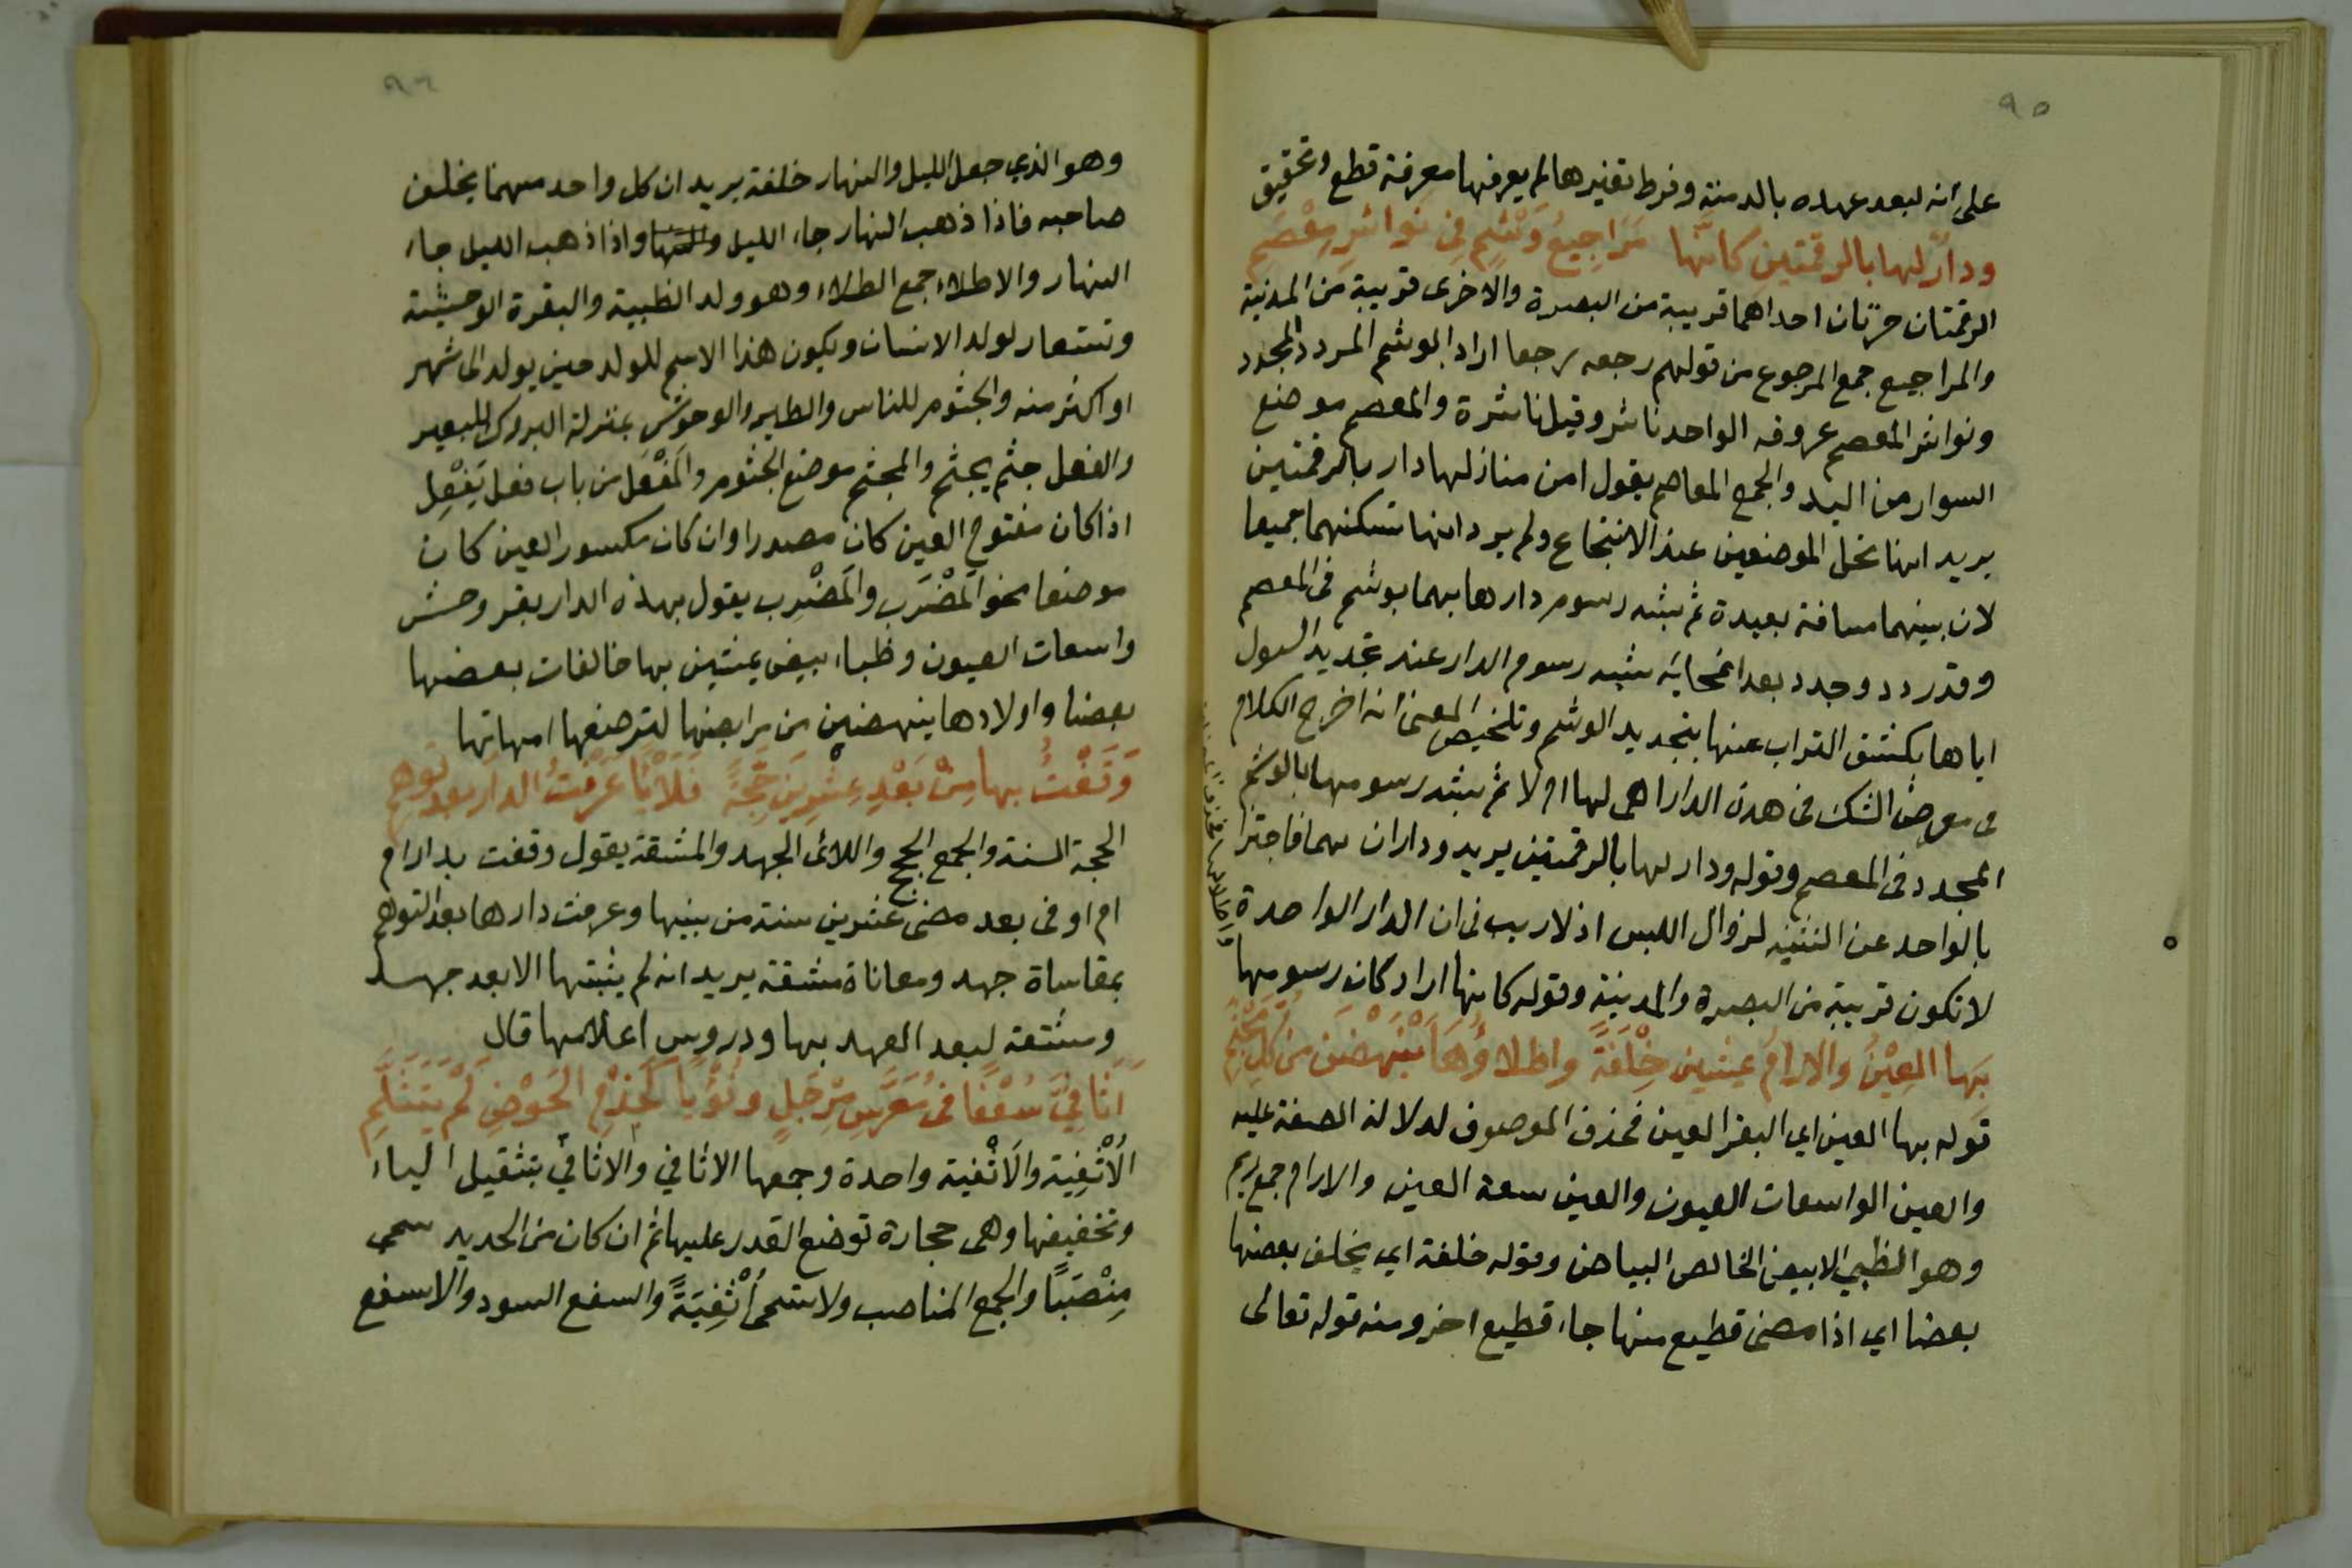 ٩٥
على انه لبعد عهده بالدمنة وفرط تغيرها لم يعرفها معرفة قطع وتحقيق
ودارٌ لها بالرقمتين كانّها مَرَاجِيعُ وَشْمٍ فِى نواشرِ مِعْصَمِ
الرقمتان حرّتان احداهما قريبة من البصرة والاخرى قريبة من المدينة
والمراجيع جمع المرجوع من قولهم رجعه رجعا اراد الوشم المردد المجدد
ونواشر المعصم عروقه الواحد ناشر وقيل ناشرة والمعصم موضع
السوار من اليد والجمع المعاصم يقول امن منازلها دار بالرقمتين
يريد انها تحل الموضعين عند الانتجاع ولم يرد انها تسكنهما جميعا
لان بينهما مسافة بعيدة ثم شبه رسوم دارها بهما بوشم فى المعصم
وقد ردد وجدد بعد انمحائه شبه رسوم الدار عند تجديد السول
اياها بكشف التراب عنها بتجديد الوشم وتلخيص المعنى انه اخرج الكلام
فى معرض الشك فى هذه الدار اهى لها ام لا ثم شبه رسومها بالوشم
المجدد فى المعصم وقوله ودار لها بالرقمتين يريد وداران بهما فاجتزا
بالواحد عن التثنيه لزوال اللبس اذ لا ريب فى ان الدار الواحدة
لا تكون قريبة من البصرة والمدينة وقوله كانها اراد كان رسومها
بَها العِيْنُ والارامُ يمشين خِلْفَةً واطلاؤُهَا يَنْهَضْنَ من كلِ مَجْثَمِ
قوله بها العين اي البقر العين فحذف الموصوف لدلالة الصفة عليه
والعين الواسعات العيون والعين سعة العين والارام جمع ريم
وهو الظبي الابيض الخالص البياض وقوله خلفة اي يخلف بعضها
بعضا اي اذا مضى قطيع منها جاء قطيع اخر ومنه قوله تعالى
٩٦
وهو الذي جعل الليل والنهار خلفة يريد ان كل واحد منهما يخلف
صاحبه فاذا ذهب النهار جاء الليل واذا ذهب الليل جاء
النهار والاطلاء جمع الطلاء وهو ولد الظبية والبقرة الوحشية
وتستعار لولد الانسان ويكون هذا الاسم للولد حين يولد الى شهر
او اكثر منه والجثوم للناس والطير والوحوش بمنزلة البروك للبعير
والفعل جثم يجثم والمجثم موضع الجثوم والمَفْعَل من باب فعل يَفْعِل
اذا كان مفتوح العين كان مصدرا وان كان مكسور العين كان
موضعا نحو المَضْرَب والمَضْرِب يقول بهذه الدار بقر وحش
واسعات العيون وظباء بيض يمشين بها خالفات بعضها
بعضا واولادها ينهضن من مرابضها لترضعها امهاتها
وَقَفْتُ بها مِنْ بَعْدِ عِشْرِينَ حَجَّةً فَلَأيًا عَرَفْتُ الدارَ بعد توهم
الحجة السنة والجمع الحجج واللائى الجهد والمشقة يقول وقفت بدار ام
ام اوفى بعد مضى عشرين سنة من بينها وعرفت دارها بعد التوهم
بمقاساة جهد ومعاناة مشقة يريد انه لم يثبتها الا بعد جهد
ومشقة لبعد العهد بها ودروس اعلامها قال
اَثَافِيَّ سُفْعًا فى مُعَرَّسِ مِرْجَلٍ ونُؤْيًا كَجِذْمِ الحَوْضِ لَمْ يَتَثَلَّمِ
الْاُثْفِيَة والْاَثْفية واحدة وجمعها الاثافي والاثافيّ بتثقيل الياء
وتخفيفها وهى حجارة توضع القدر عليها ثم ان كان من الحديد سمى
مِنْصَبًا والجمع المناصب ولا تسمى أُثْفِيَةً والسفع السود والاسفع